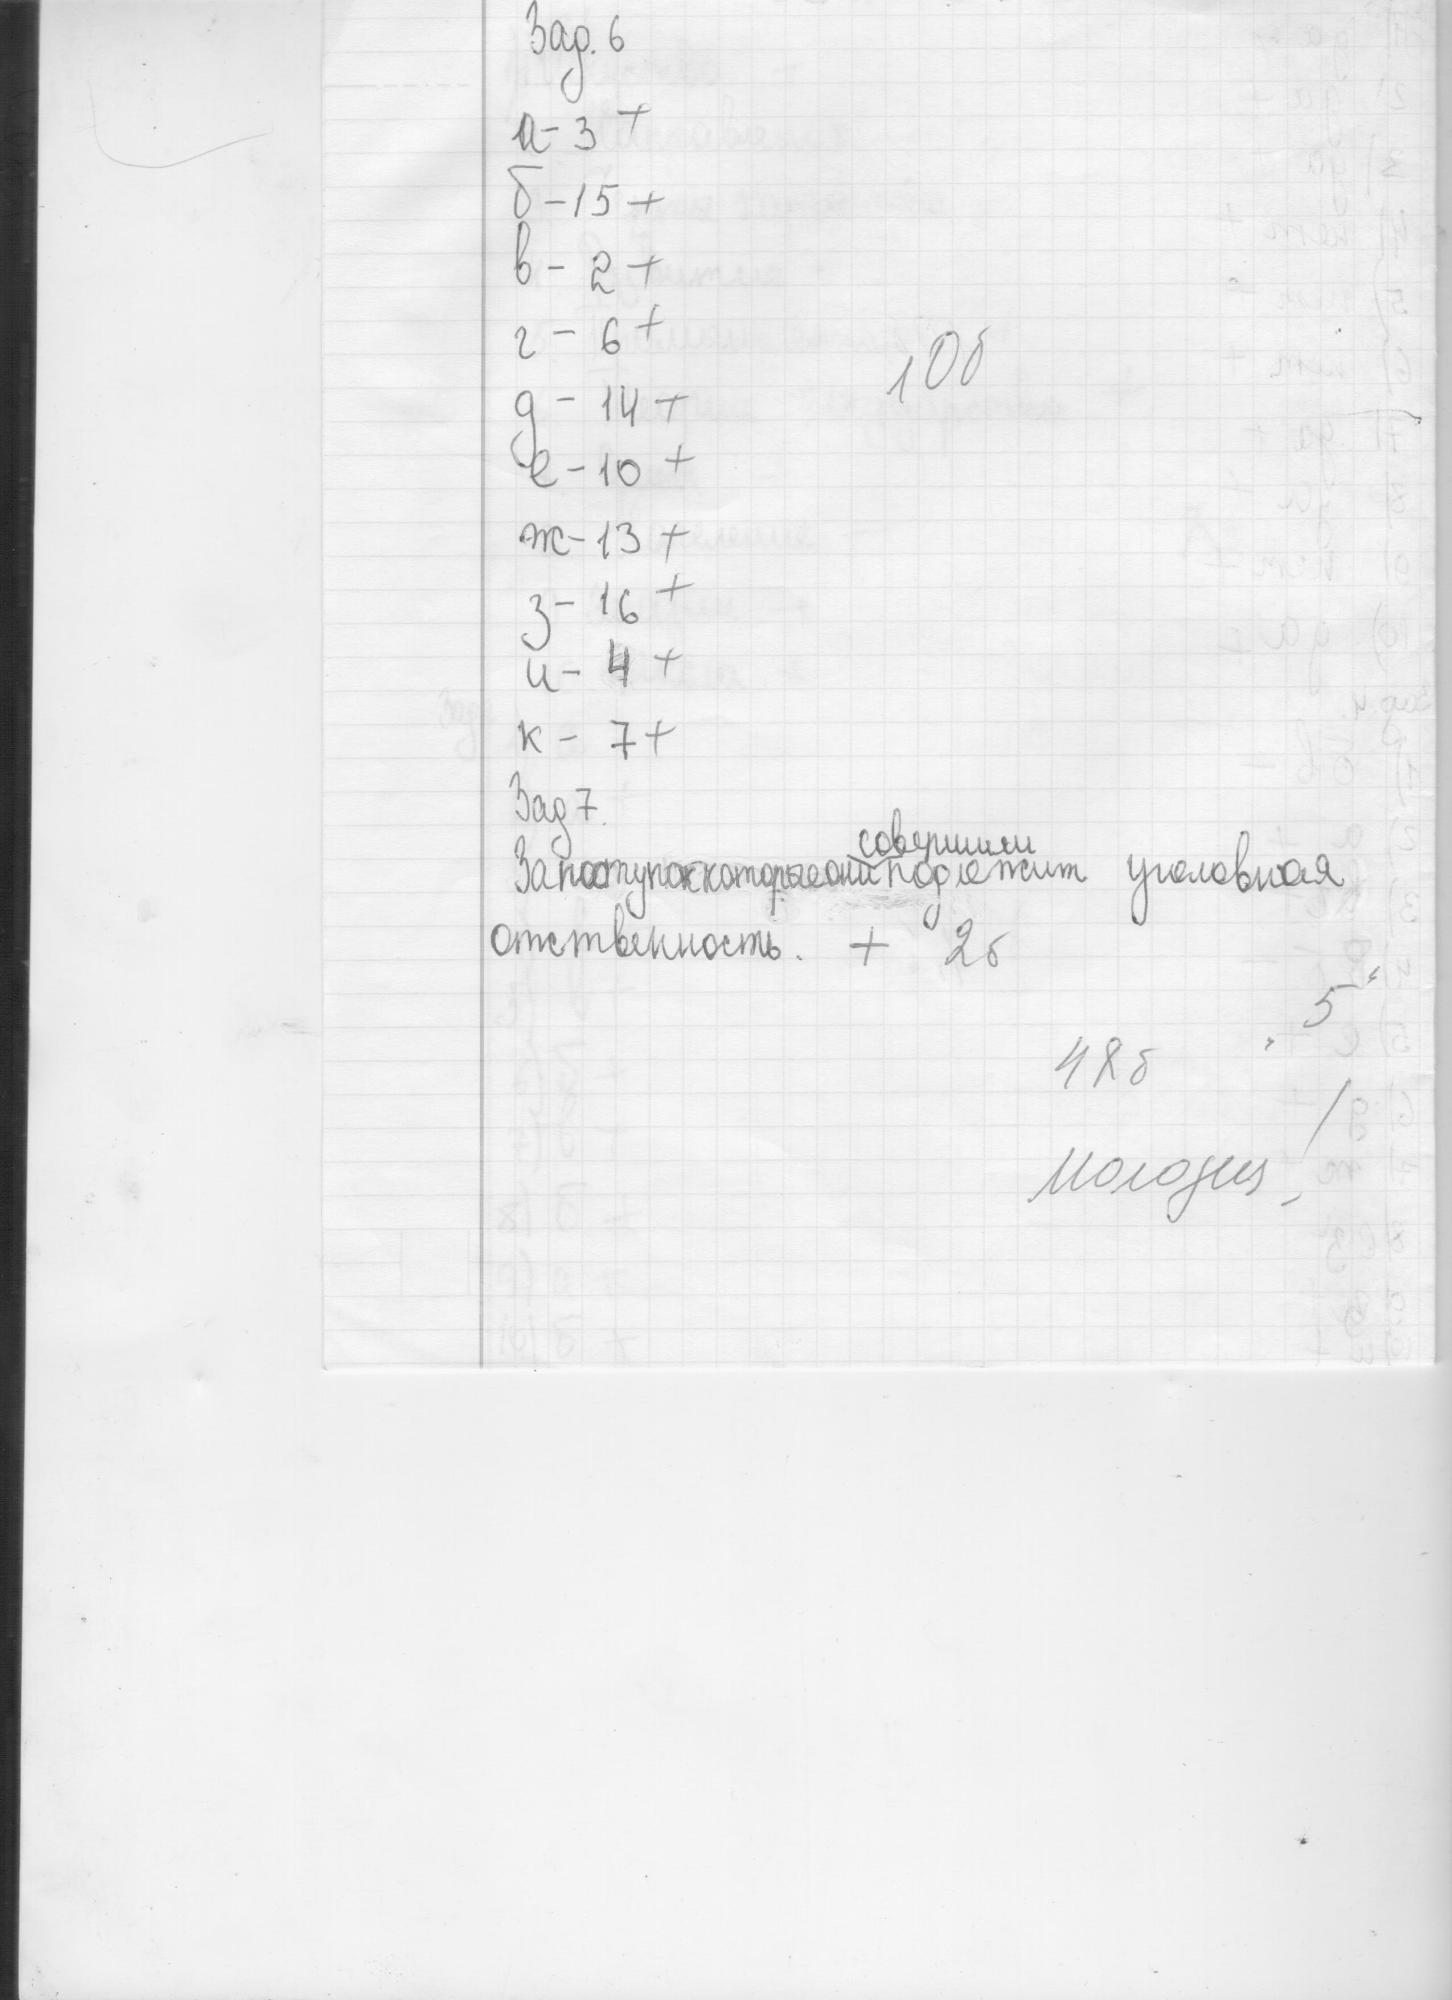 Зад. 6
а - 3 +
б - 15 +
в - 2 +
г - 6 +
10б
д - 14 +
е - 10 +
ж - 13 +
з - 16 +
и - 4 +
к - 7 +
Зад 7.
совершили
За поступок которые они подлежит уголовная
отственность. + 2б
„5“
48б
Молодец!